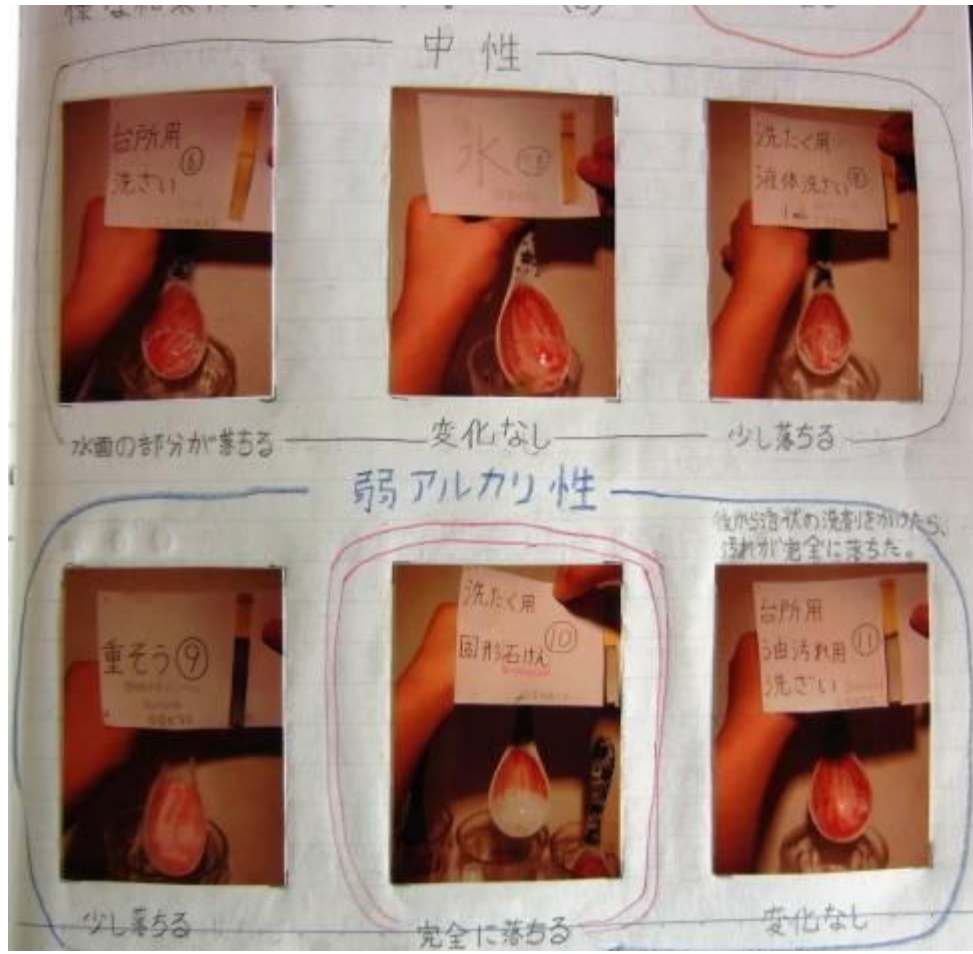 中性
台所用
洗ざい ⑥
水
洗たく用
液体洗ざい
1mL
水面の部分が落ちる
変化なし
少し落ちる
弱アルカリ性
後から泡状の洗剤をかけたら、
汚れが完全に落ちた。
重そう⑨
洗たく用
固形石けん ⑩
台所用
油汚れ用 ⑪
洗ざい
少し落ちる
完全に落ちる
変化なし